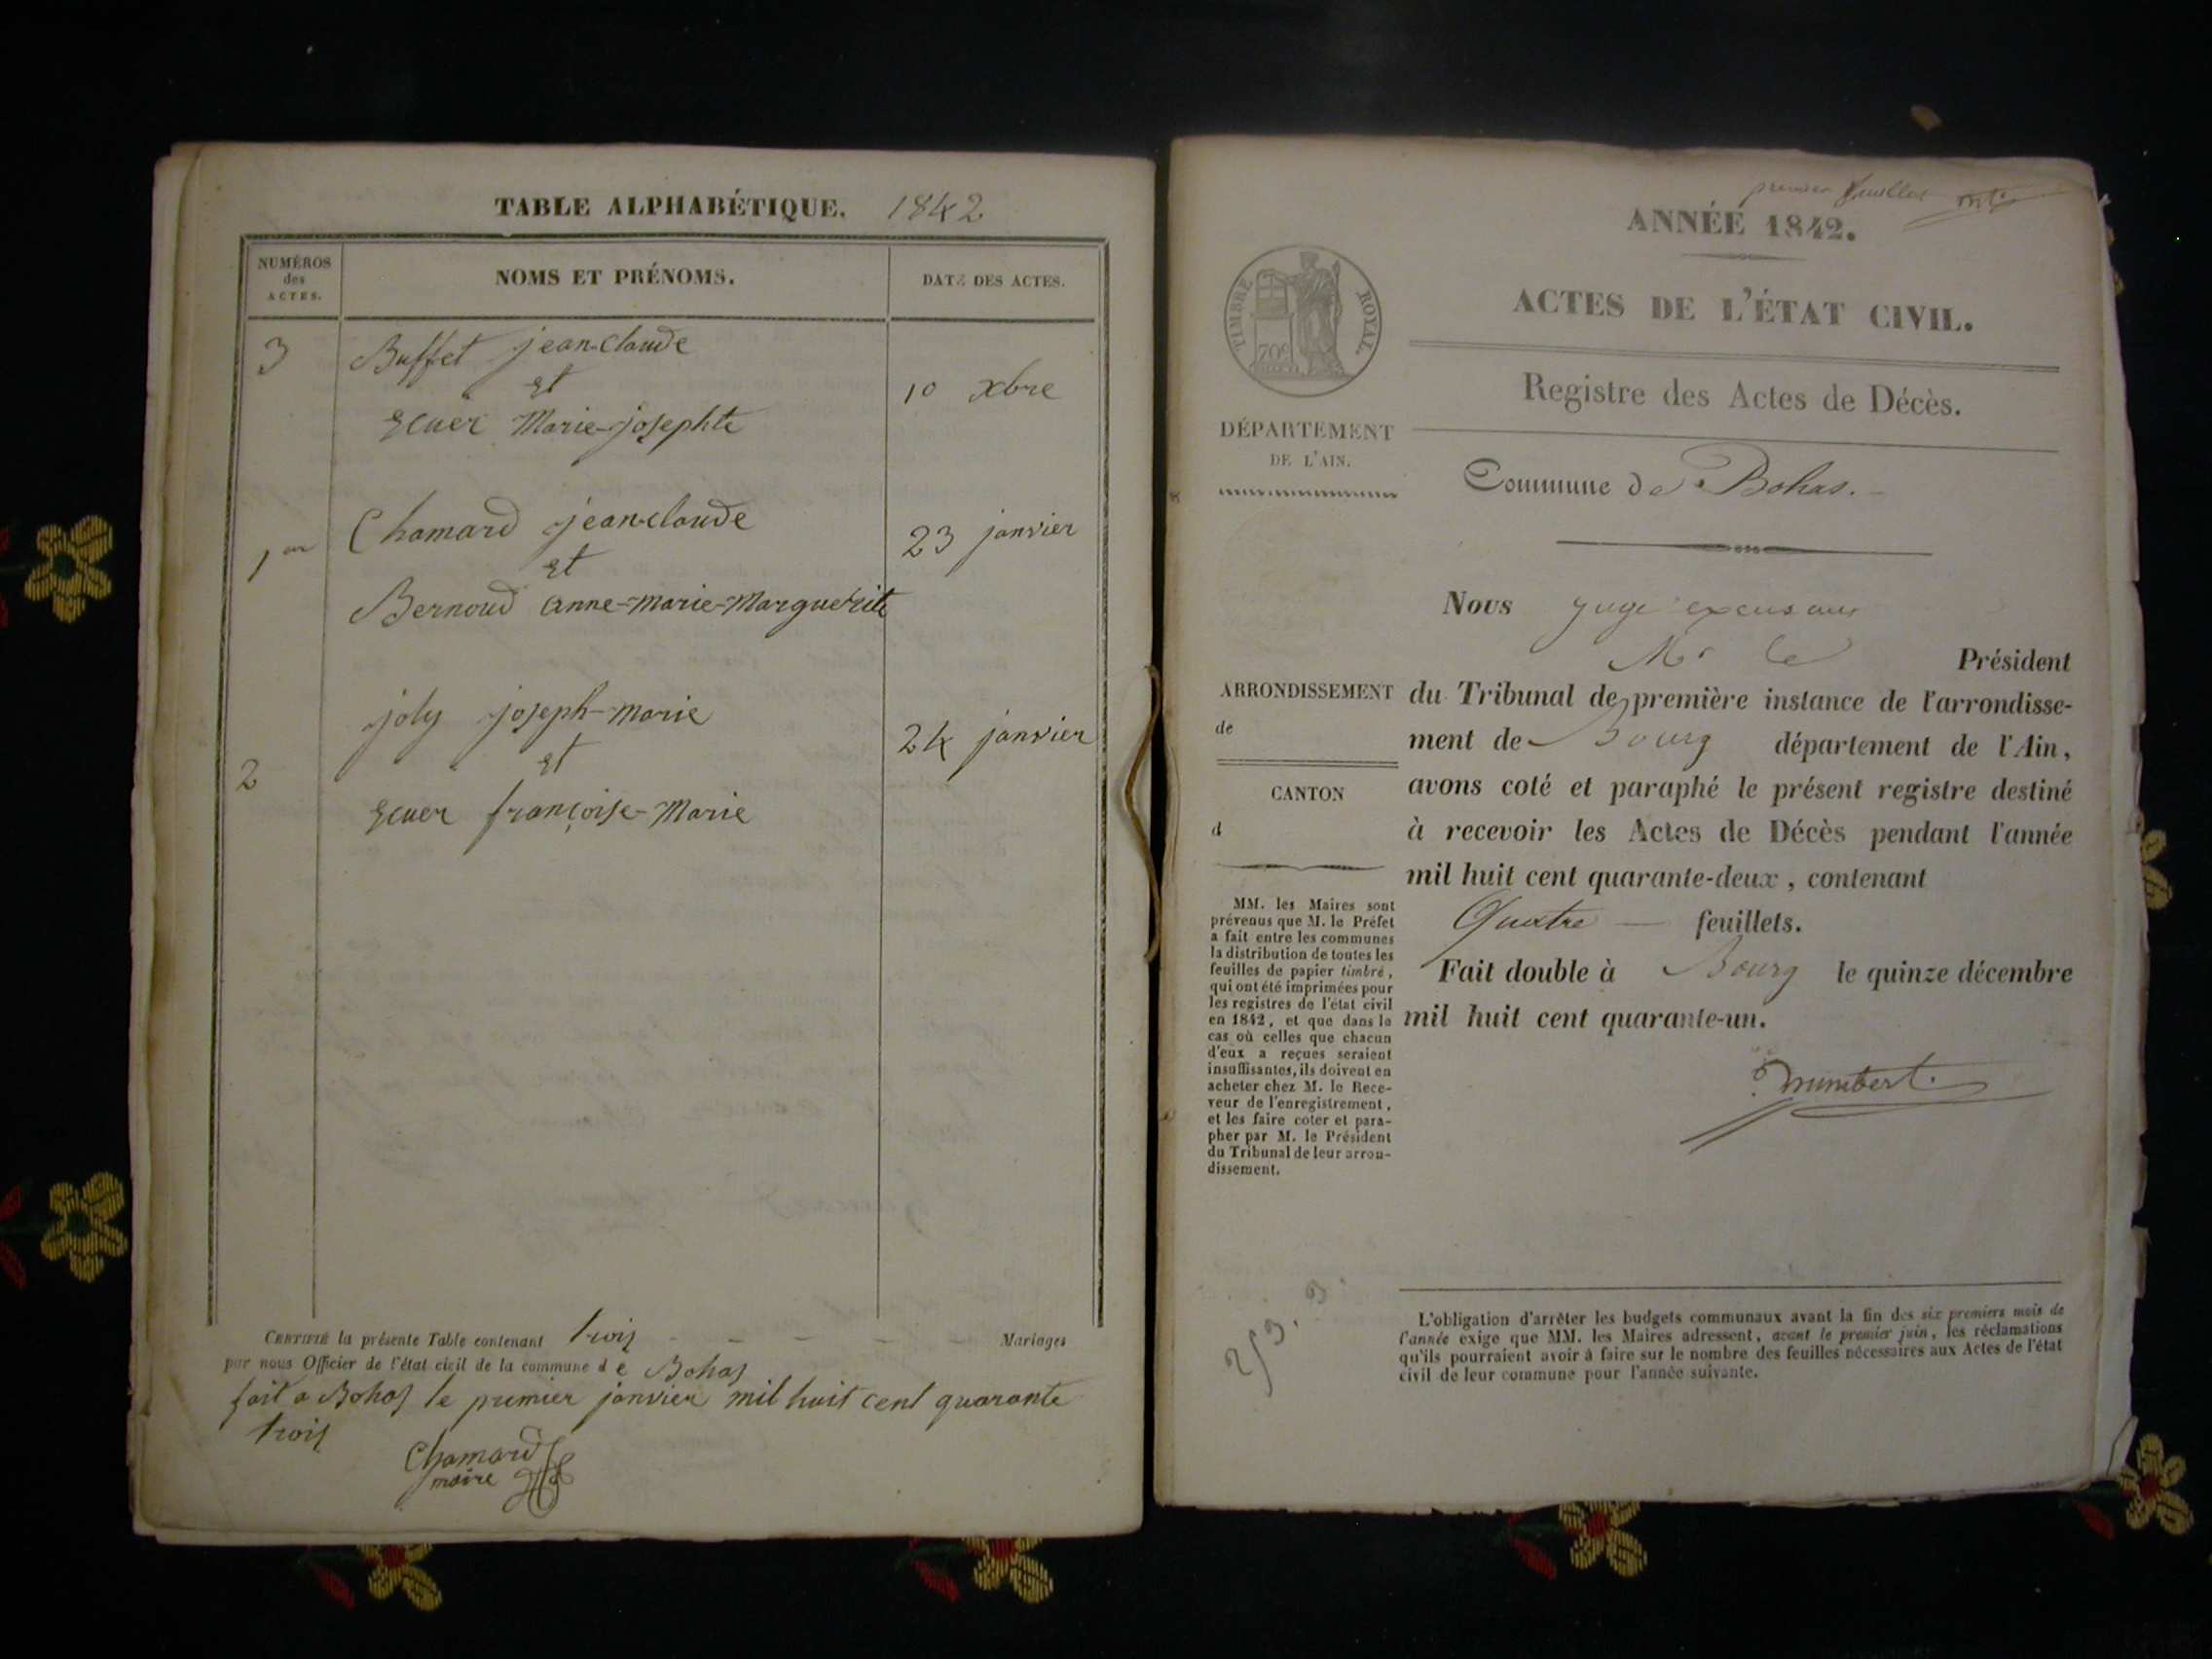 TABLE ALPHABÉTIQUE. 1842
NUMÉROS
des
ACTES.
NOMS ET PRÉNOMS.
DATE DES ACTES.
3 Buffet jean-claude
et
10 xbre
Ecuer Marie-josephte
1er Chamard jean-claude
23 janvier
et
Bernoud anne-marie-Marguerite
joly joseph-marie
24 janvier
et
2
Ecuer françoise-Marie
CERTIFIÉ la présente Table contenant trois - - - - - Mariages
par nous Officier de l'état civil de la commune de Bohas
fait a Bohas le premier janvier mil huit cent quarante
trois
Chamard
maire
premier feuillet
ANNÉE 1842.
TIMBRE ROYAL
70c
ACTES DE L'ÉTAT CIVIL.
Registre des Actes de Décès.
DÉPARTEMENT
DE L'AIN.
Commune de Bohas.
Nous juge
Mr le Président
ARRONDISSEMENT
de
CANTON
d
du Tribunal de première instance de l'arrondisse-
ment de Bourg département de l'Ain,
avons coté et paraphé le présent registre destiné
à recevoir les Actes de Décès pendant l'année
mil huit cent quarante-deux, contenant
Quatre — feuillets.
Fait double à Bourg le quinze décembre
mil huit cent quarante-un.
MM. les Maires sont
prévenus que M. le Préfet
a fait entre les communes
la distribution de toutes les
feuilles de papier timbré,
qui ont été imprimées pour
les registres de l'état civil
en 1842, et que dans le
cas où celles que chacun
d'eux a reçues seraient
insuffisantes, ils doivent en
acheter chez M. le Rece-
veur de l'enregistrement,
et les faire coter et para-
pher par M. le Président
du Tribunal de leur arron-
dissement.
L'obligation d'arrêter les budgets communaux avant la fin des six premiers mois de
l'année exige que MM. les Maires adressent, avant le premier juin, les réclamations
qu'ils pourraient avoir à faire sur le nombre des feuilles nécessaires aux Actes de l'état
civil de leur commune pour l'année suivante.